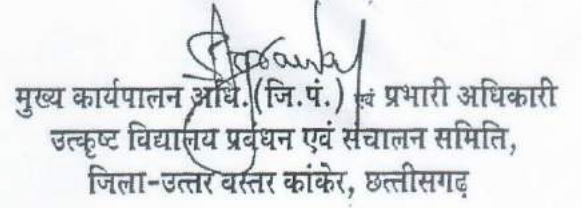 मुख्य कार्यपालन अधि.(जि.पं.) एवं प्रभारी अधिकारी
उत्कृष्ट विद्यालय प्रबंधन एवं संचालन समिति,
जिला-उत्तर बस्तर कांकेर, छत्तीसगढ़